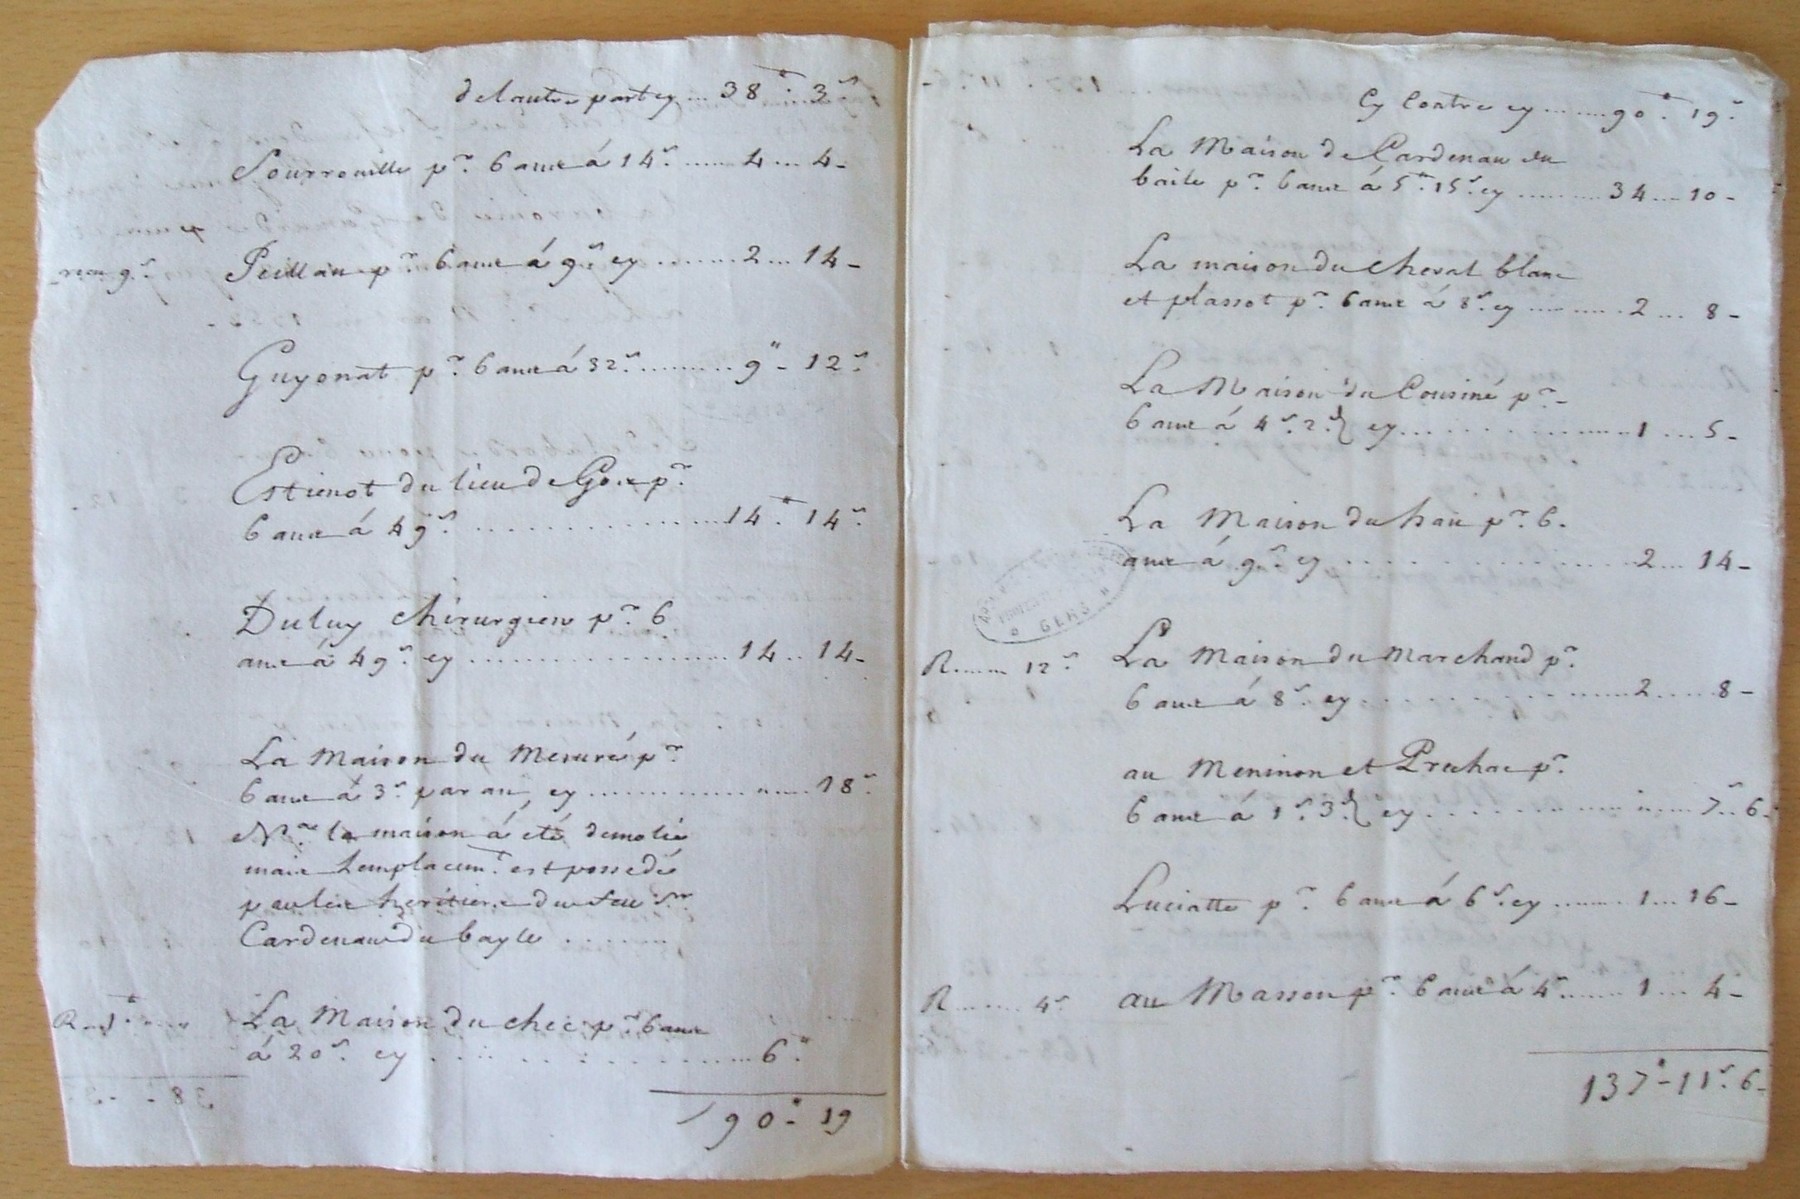 de lautre part cy ... 38ᵗᵗ. 3ˢ
Sourrouille pʳ. 6 anns á 14ˢ. ...... 4 ... 4 -
recu 9ˢ. Peillan pʳ 6 anns á 9ˢ cy ........ 2 ... 14 -
Guyonat pʳ. 6 anns á 32ˢ. ......... 9ᵗᵗ - 12ˢ
Estienot du lieu de Goux pʳ
6 anns á 49ˢ ................ 14ᵗᵗ 14ˢ.
Duluy chirurgien pʳ 6
anns á 49ˢ. cy .................... 14 .. 14 -
La Maison du Mesuré pʳ
6 anns á 3ˢ. par an, cy ................ 18ˢ
Nᵃ. la maison á eté demolie
mais lemplacemᵗ. est possedé
par les heritiers du feu Sʳ
Cardenau du bayle .......
R ... 1ᵗᵗ ...... La Maison du chec pʳ. 6 anns
á 20ˢ. cy ................... 6ᵗᵗ
90ᵗᵗ - 19
Cy Contre cy ....... 90ᵗᵗ. 19ˢ.
La Maison de Cardenau du
baile pʳ. 6 anns á 5ᵗᵗ. 15ˢ. cy ......... 34 .... 10 -
La maison du cheval blanc
et plassot pʳ. 6 anns á 8ˢ. cy .......... 2 ... 8 -
La Maison du Cousiné pʳ -
6 anns á 4ˢ. 2ᵈ cy .................. 1 ... 5 -
La Maison du haü pʳ. 6 -
anns á 9ˢ. cy .................. 2 ... 14 -
R ...... 12ˢ La Maison du Marchand pʳ.
6 anns á 8ˢ. cy .................... 2 ..... 8 -
au Meninon et Prechac pʳ.
6 anns á 1ˢ. 3ᵈ cy .................... 7ˢ .. 6 -
Luciatte pʳ. 6 anns á 6ˢ. cy ....... 1 ... 16 -
R ....... 4ˢ au Masson pʳ. 6 anns á 4ˢ ....... 1 ... 4 -
137ᵗᵗ - 11ˢ. 6 -
GERS